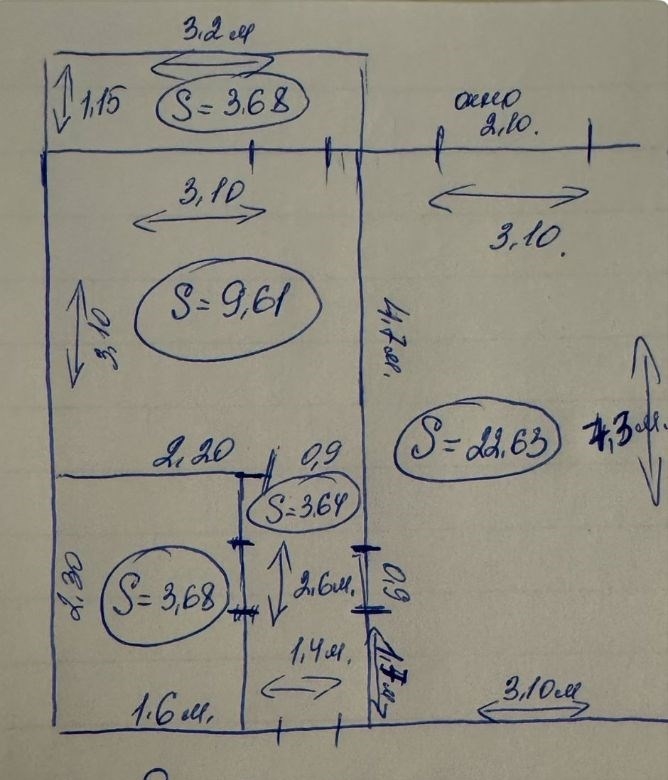 3.2 м
1,15
S = 3.68
окно
2,10.
3,10
3,10.
S = 9,61
3,10
4,7 м.
S = 22,63
7,3 м.
2,20
0,9
S = 3.64
2,30
S = 3,68
2.6 м.
0,9
1,4 м.
1.7 м
1.6 м.
3.10 м